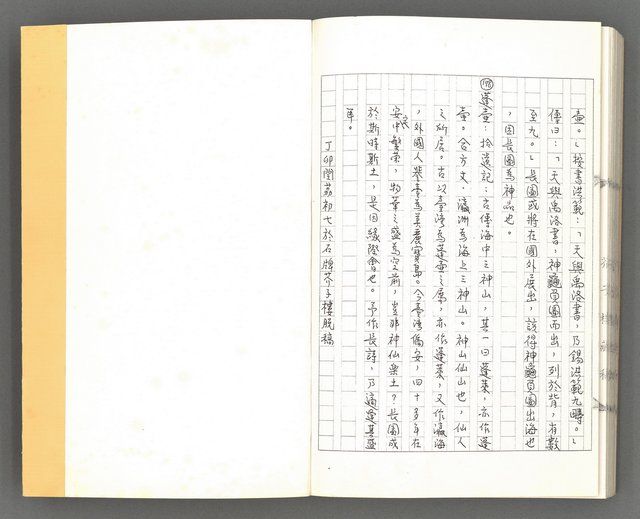 壺。」按書洪範：「天與禹洛書，乃錫洪範九疇。」
傳曰：「天與禹洛書，神龜負圖而出，列於背，有數
至九。」長圖或將在國外展出，該得神龜負圖出海也
，因長圖為神品也。
蓬壺：拾遺記：古傳海中之神山，其一曰蓬萊，亦作蓬
壺。合方丈、瀛洲為海上三神山。神山仙山也，仙人
之所居。古以臺灣為蓬壺之屬，亦作蓬萊，又作瀛海
，外國人發臺為美麗寶島。今臺灣偏安，四十多年在
安定中繁榮，物華之盛為空前，豈非神仙樂土？長圖成
於斯時斯土，是因緣際會也。予作長詩，乃適逢其盛
年。
丁卯閏荔初七於石牌芥子樓脫稿